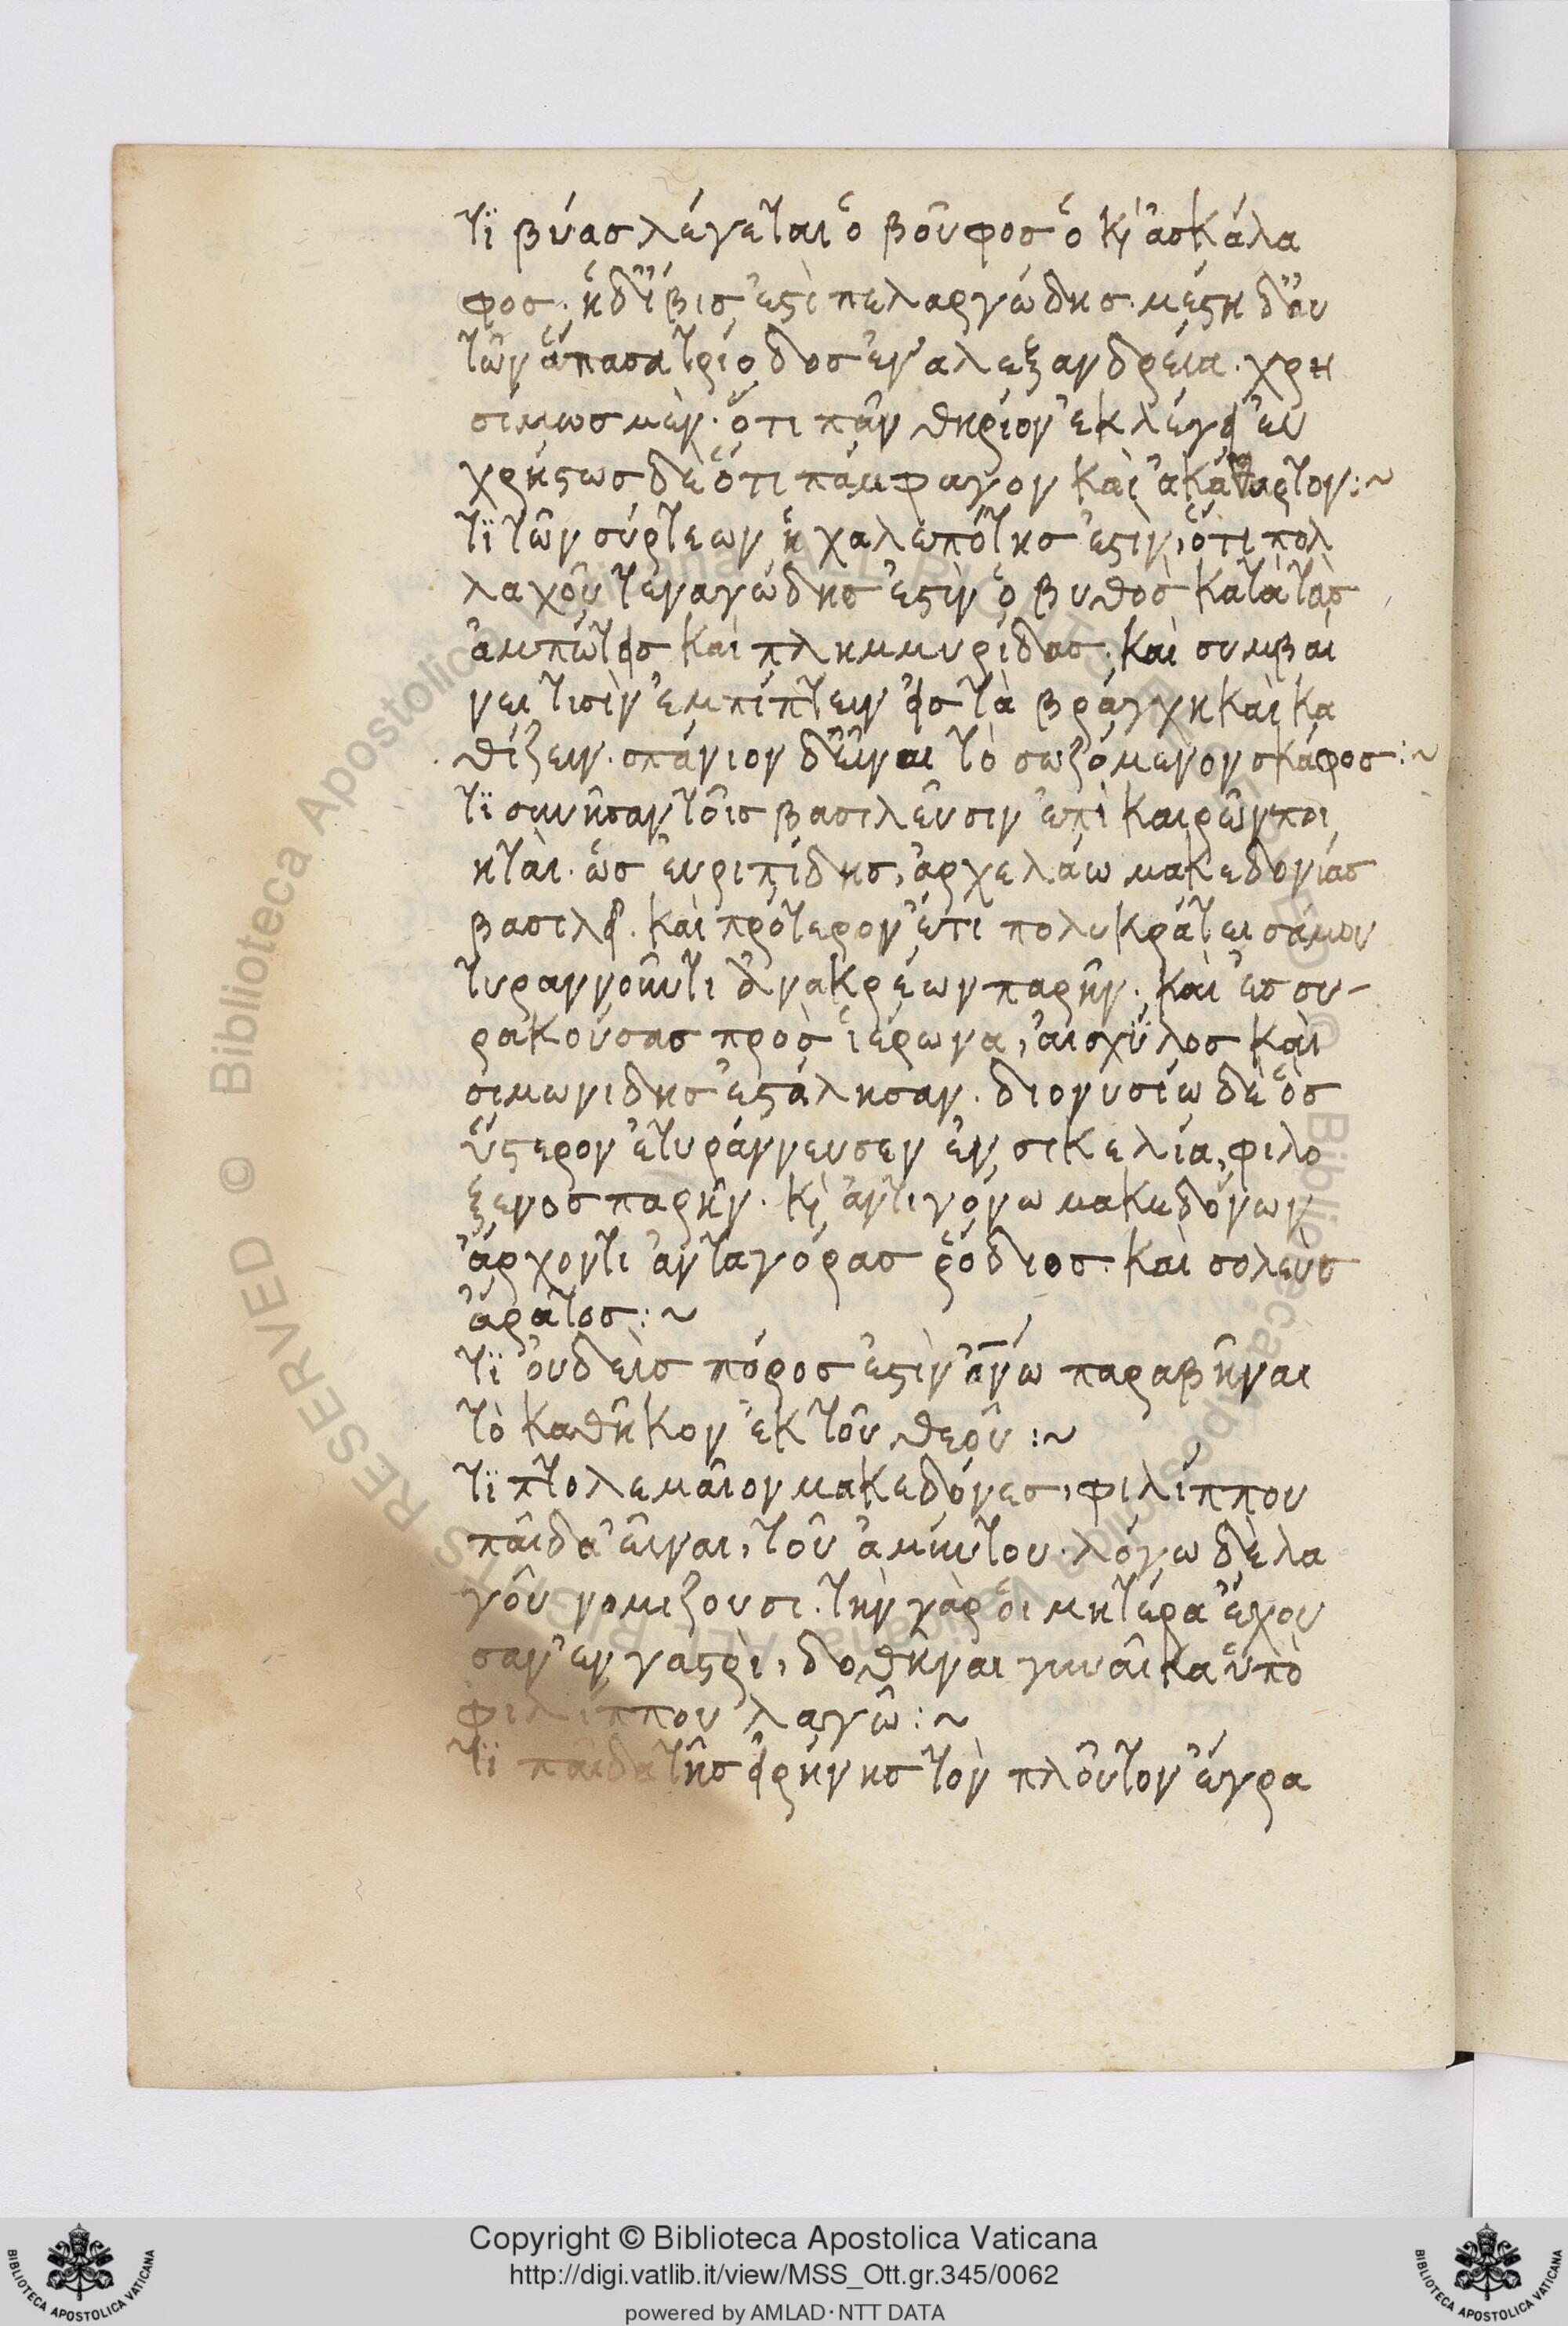 τϊ βύας λέγεται ὁ βοῦφος ὁ κ(αὶ) ἀσκάλα
φος· ἡ δ' ἴβις ἐστὶ πελαργώδης· μέστη δ' οὖν
τῶν ἅπασα τρίοδος ἐν ἀλεξανδρεία· χρη
σίμως μὲν· ὅτι πᾶν θηρίον ἐκλέγει ἐυ
χρήστως δὲ ὅτι πάμφαγον καὶ ἀκάθαρτον:~
τϊ τῶν σύρτεων ἡ χαλεπότης ἐστὶν, ὅτι πολ
λαχοῦ τεναγώδης ἐστὶν ὁ βυθὸς κατὰ τὰς
ἀμπώτεις καὶ πλημμυρίδας· καὶ συμβαί
νει τισὶν ἐμπίπτειν εἰς τὰ βράγχη καὶ κα
θίζειν· σπάνιον δ' εἶναι τὸ σωζόμενον σκάφος:~
τϊ συνῆσαν τοῖς βασιλεῦσιν ἐπὶ καιρῶν ποι
ηταὶ· ὡς ἐυριπίδης, ἀρχελάω μακεδονίας
βασιλεῖ· καὶ πρότερον ἔτι πολυκράτει σάμου
τυραννοῦντι ἀνακρέων παρῆν· καὶ ἐς συ-
ρακούσας πρὸς ἱέρωνα, ἀισχύλος καὶ
σιμωνιδης ἐστάλησαν· διονυσίω δὲ ὃς
ὕστερον ἐτυράννευσεν ἐν σικελία, φιλό
ξενος παρῆν· κ(αὶ) ἀντιγόνω μακεδόνων
ἄρχοντι ἀνταγόρας ῥόδιος· καὶ σολεὺς
ἄρατος:~
τϊ ὀυδεὶς πόρος ἐστὶν ἀν(θρώπ)ω παραβῆναι
τὸ καθῆκον ἐκ τοῦ θεοῦ:~
τϊ πτολεμαῖον μακεδόνες, φιλίππου
παῖδα εἶναι, τοῦ ἀμύντου· λόγω δὲ λα
γοῦ νομιζουσι· τὴν γὰρ ὁι μητέρα ἔχου
σαν ἐν γαστρὶ, δοθῆναι γυναῖκα ὑπὸ
φιλίππου λαγῶ:~
τϊ παῖδα τῆς εἰρήνης τὸν πλοῦτον ἔγρα
Copyright © Biblioteca Apostolica Vaticana
http://digi.vatlib.it/view/MSS_Ott.gr.345/0062
powered by AMLAD·NTT DATA